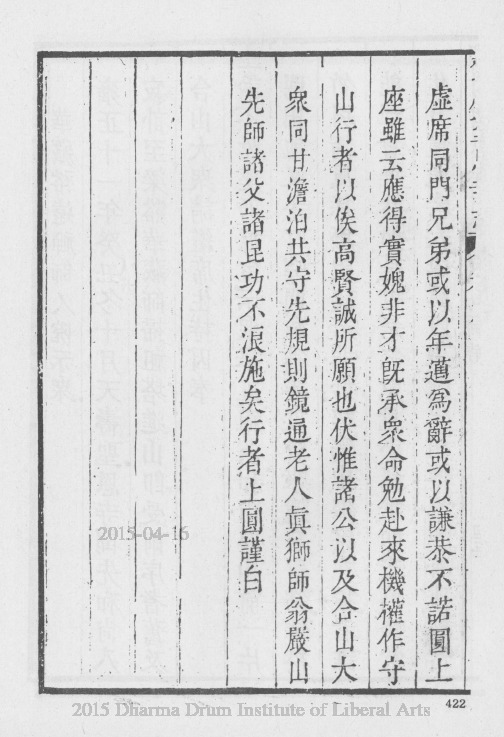 虛席同門兄弟或以年邁爲辭或以謙恭不諾圓上
座雖云應得實媿非才旣承衆命勉赴來機權作守
山行者以俟高賢誠所願也伏惟諸公以及合山大
衆同甘澹泊共守先規則鏡通老人眞獅師翁嚴山
先師諸父諸昆功不浪施矣行者上圓謹白
2015-04-16
422
2015 Dharma Drum Institute of Liberal Arts